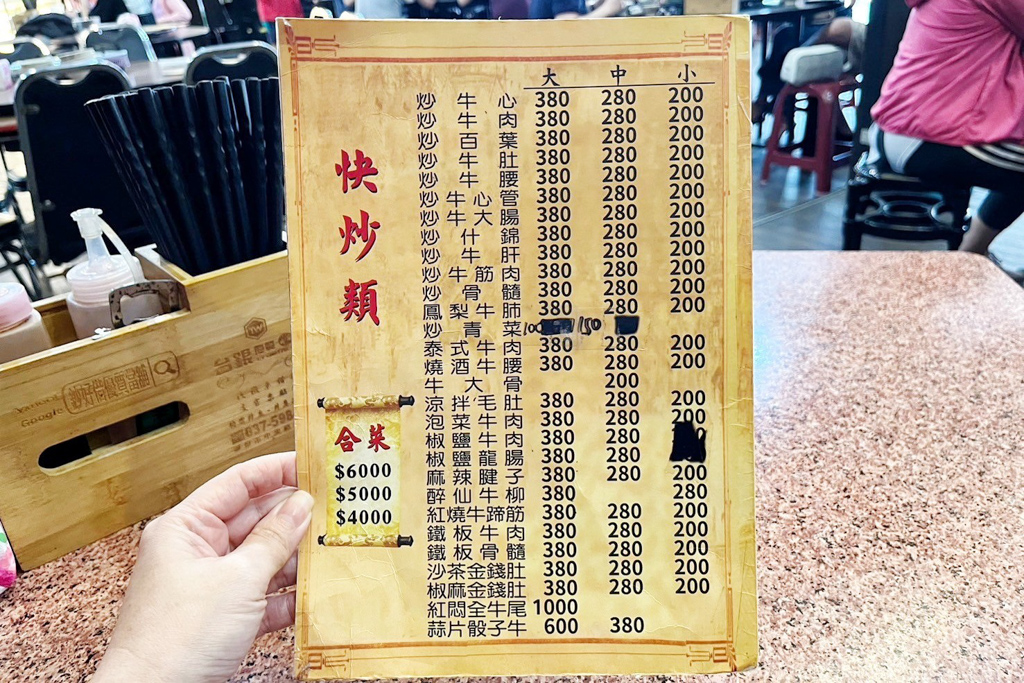 快炒類
大 中 小
炒牛心 380 280 200
炒牛肉 380 280 200
炒百葉 380 280 200
炒牛肚 380 280 200
炒牛腰 380 280 200
炒牛心管 380 280 200
炒牛大腸 380 280 200
炒什錦 380 280 200
炒牛肝 380 280 200
炒牛筋肉 380 280 200
炒骨髓 380 280 200
鳳梨牛肺 380 280 200
炒青菜 100 150
泰式牛肉 380 280 200
燒酒牛腰 380 280 200
牛大骨 200
涼拌毛肚 380 280 200
泡菜牛肉 380 280 200
椒鹽牛肉 380 280
椒鹽龍腸 380 280
麻辣腱子 380 280 200
醉仙牛柳 380 280
紅燒牛蹄筋 380 280 200
鐵板牛肉 380 280 200
鐵板骨髓 380 280 200
沙茶金錢肚 380 280 200
椒麻金錢肚 380 280 200
紅悶全牛尾 1000
蒜片骰子牛 600 380
合菜
$6000
$5000
$4000
Yahoo
Google